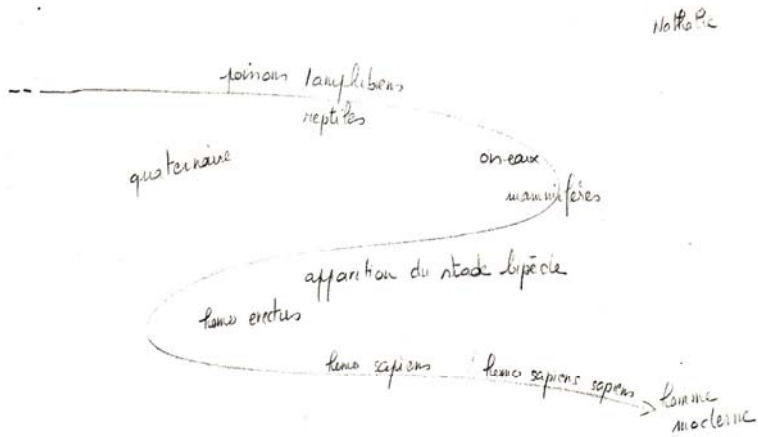 Nathalie
poissons / amphibiens
reptiles
quaternaire
oiseaux
mammifères
apparition du stade bipède
homo erectus
homo sapiens / homo sapiens sapiens
homme
moderne